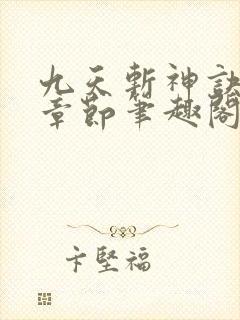 九天斬神訣
章節筆趣閣
卞堅福